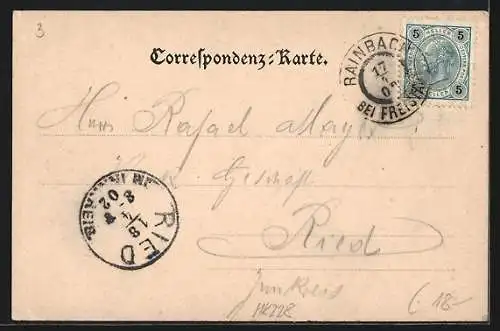 3
Correspondenz-Karte.
RAINBACH
17
BEI FREISTADT
5 HELLER 5
5 5
Herrn Rafael May
Geschäft
Ried
Innkreis
RIED IM INNKREIS
18
4
02
8-
HK228
18-